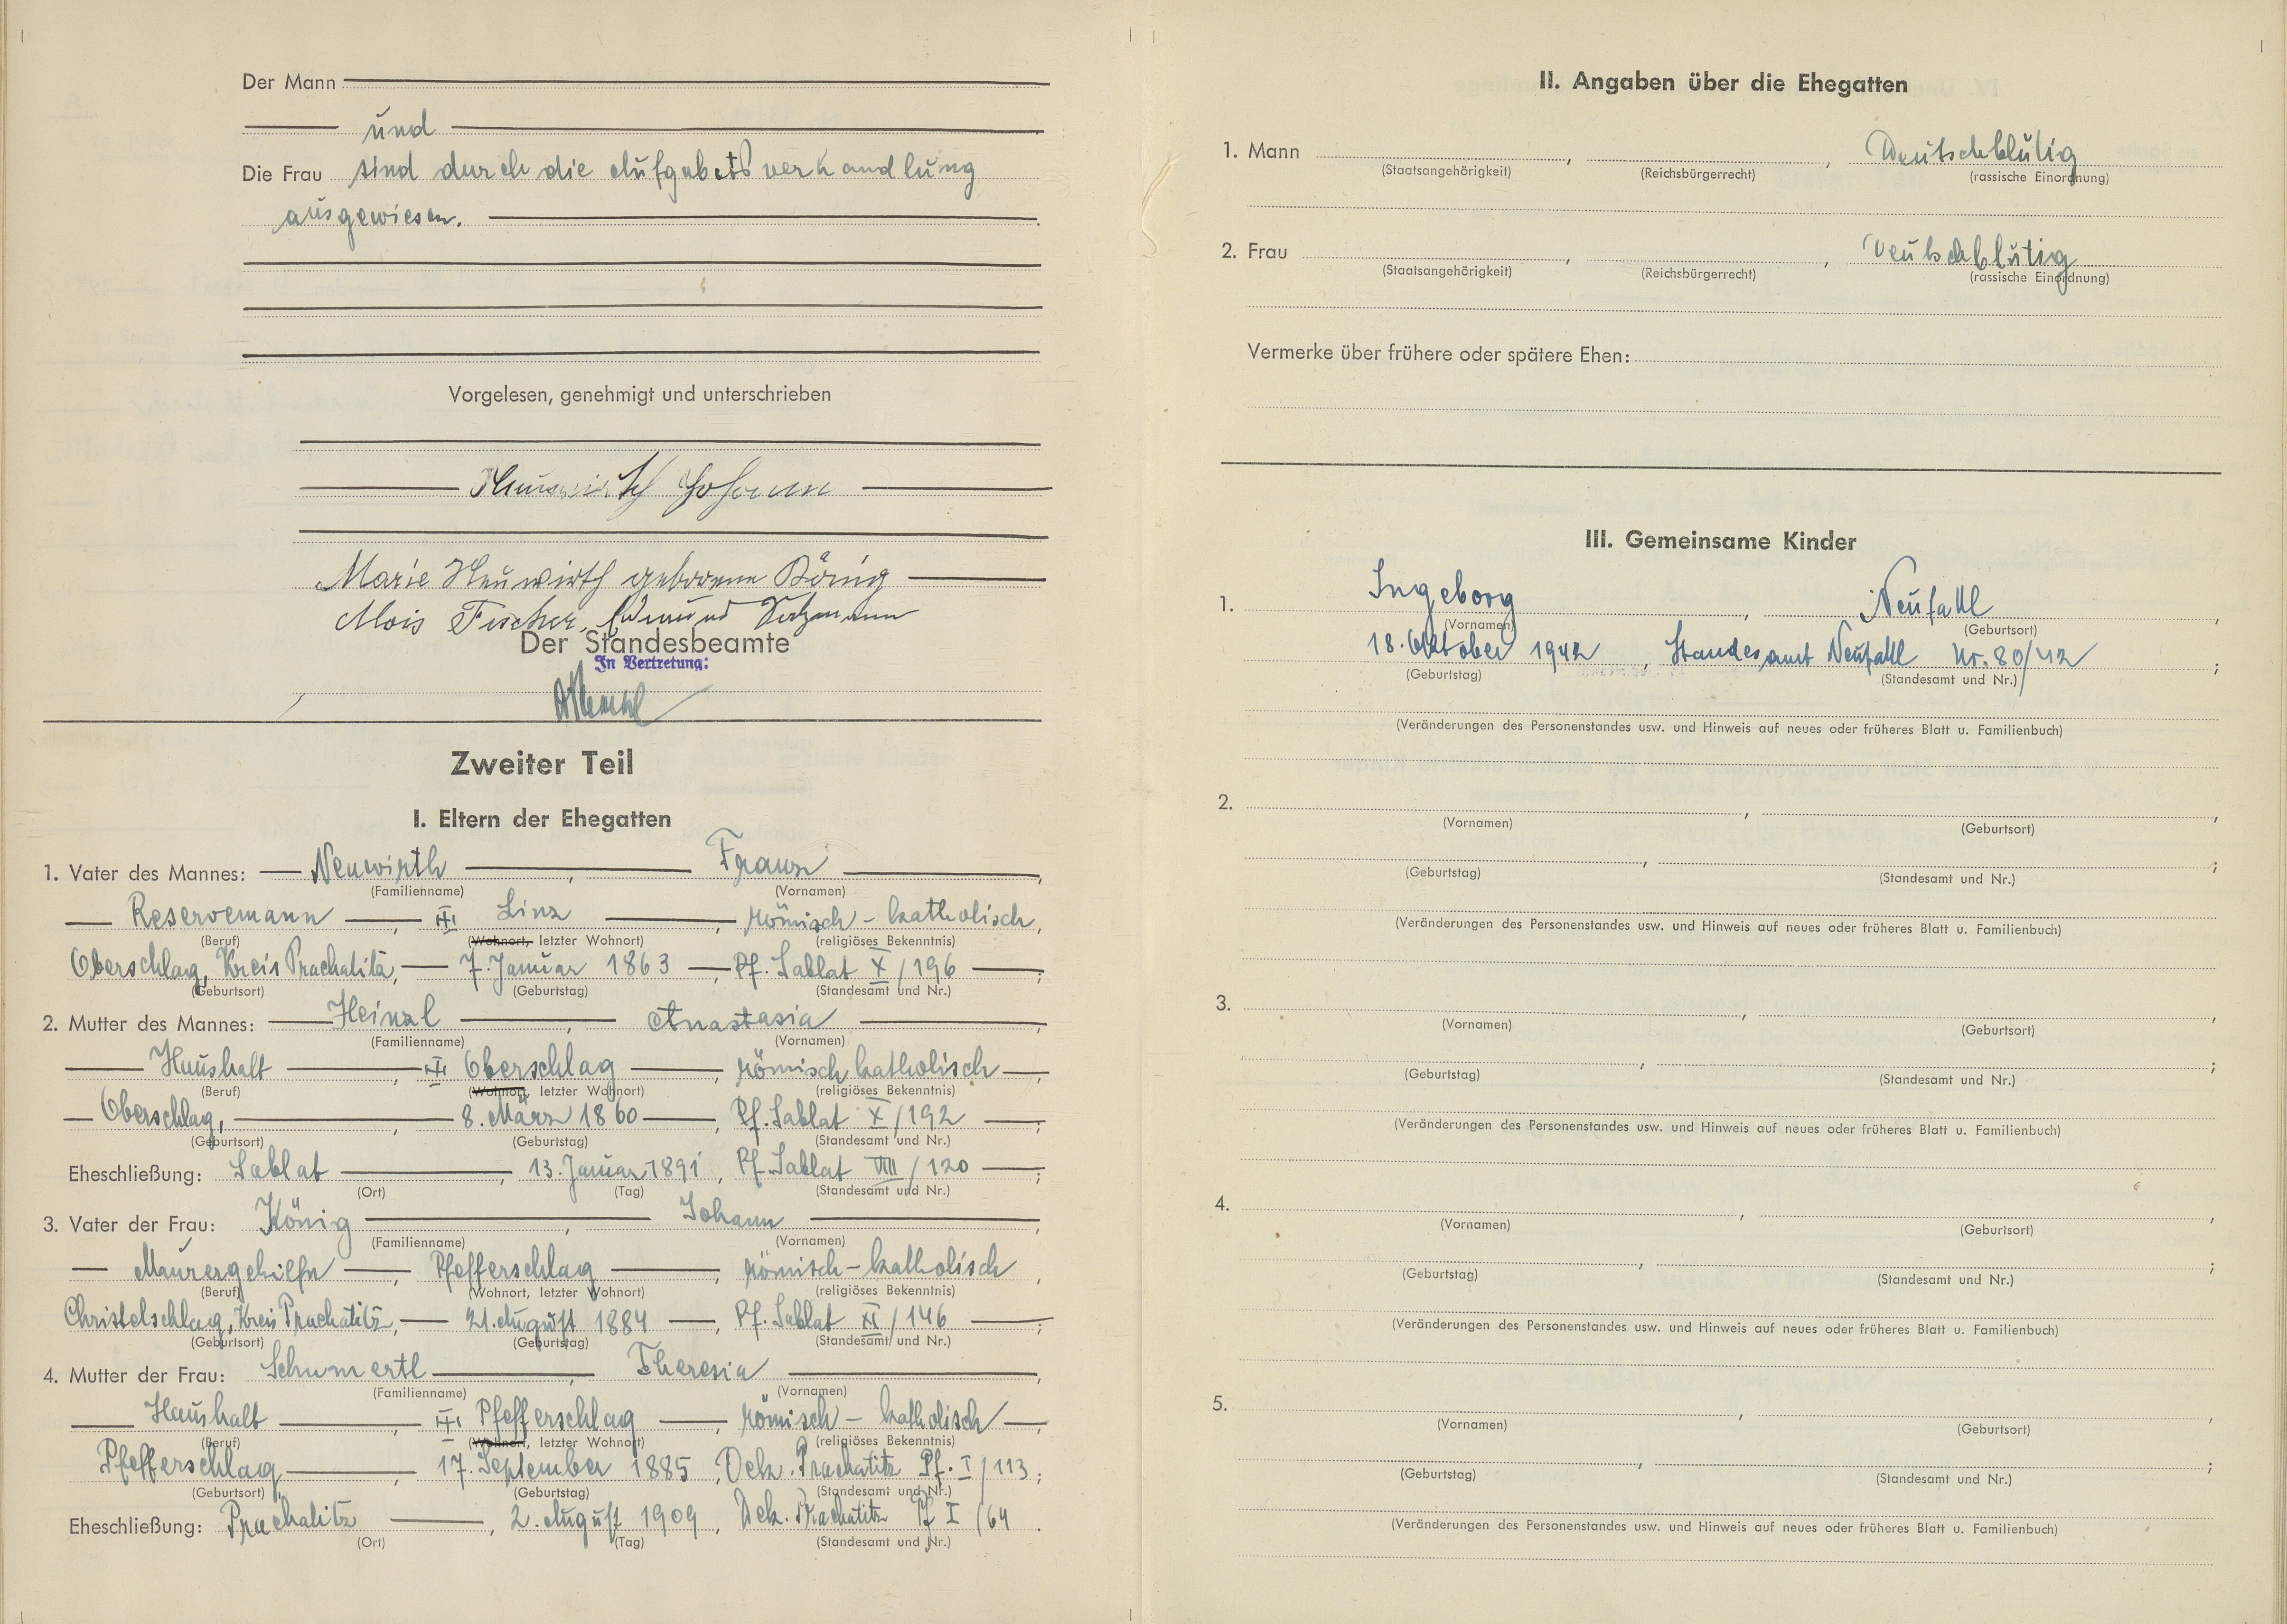 Der Mann
und
Die Frau sind durch die Aufgebotsverhandlung
ausgewiesen.
Vorgelesen, genehmigt und unterschrieben
Neuwirth Johann
Marie Neuwirth geborene König
Alois Fischer, Edmund
Der Standesbeamte
In Vertretung:
Zweiter Teil
I. Eltern der Ehegatten
1. Vater des Mannes: Neuwirth, Franz,
(Familienname) (Vornamen)
Reservemann, Linz, römisch-katholisch,
(Beruf) (Wohnort, letzter Wohnort) (religiöses Bekenntnis)
Oberschlag, Kreis Prachatitz, 7. Januar 1863, Pf. Sablat X/196;
(Geburtsort) (Geburtstag) (Standesamt und Nr.)
2. Mutter des Mannes: Heinzl, Anastasia,
(Familienname) (Vornamen)
Haushalt, Oberschlag, römisch katholisch,
(Beruf) (Wohnort, letzter Wohnort) (religiöses Bekenntnis)
Oberschlag, 8. März 1860, Pf. Sablat X/192;
(Geburtsort) (Geburtstag) (Standesamt und Nr.)
Eheschließung: Sablat, 13. Januar 1891, Pf. Sablat VIII/120;
(Ort) (Tag) (Standesamt und Nr.)
3. Vater der Frau: König, Johann,
(Familienname) (Vornamen)
Maurergehilfe, Pfefferschlag, römisch-katholisch,
(Beruf) (Wohnort, letzter Wohnort) (religiöses Bekenntnis)
Christelschlag, Kreis Prachatitz, 21. August 1884, Pf. Sablat XI/146;
(Geburtsort) (Geburtstag) (Standesamt und Nr.)
4. Mutter der Frau: Schumertl, Theresia,
(Familienname) (Vornamen)
Haushalt, Pfefferschlag, römisch-katholisch,
(Beruf) (Wohnort, letzter Wohnort) (religiöses Bekenntnis)
Pfefferschlag, 17. September 1885, Dek. Prachatitz Pf. I/113;
(Geburtsort) (Geburtstag) (Standesamt und Nr.)
Eheschließung: Prachatitz, 2. August 1909, Dek. Prachatitz Pf I/64.
(Ort) (Tag) (Standesamt und Nr.)
II. Angaben über die Ehegatten
1. Mann , , Deutschblütig
(Staatsangehörigkeit) (Reichsbürgerrecht) (rassische Einordnung)
2. Frau , , Deutschblütig
(Staatsangehörigkeit) (Reichsbürgerrecht) (rassische Einordnung)
Vermerke über frühere oder spätere Ehen:
III. Gemeinsame Kinder
1. Ingeborg, Neufattl,
(Vornamen) (Geburtsort)
18. Oktober 1942, Standesamt Neufattl Nr. 80/42;
(Geburtstag) (Standesamt und Nr.)
(Veränderungen des Personenstandes usw. und Hinweis auf neues oder früheres Blatt u. Familienbuch)
2. , ,
(Vornamen) (Geburtsort)
, ;
(Geburtstag) (Standesamt und Nr.)
(Veränderungen des Personenstandes usw. und Hinweis auf neues oder früheres Blatt u. Familienbuch)
3. , ,
(Vornamen) (Geburtsort)
, ;
(Geburtstag) (Standesamt und Nr.)
(Veränderungen des Personenstandes usw. und Hinweis auf neues oder früheres Blatt u. Familienbuch)
4. , ,
(Vornamen) (Geburtsort)
, ;
(Geburtstag) (Standesamt und Nr.)
(Veränderungen des Personenstandes usw. und Hinweis auf neues oder früheres Blatt u. Familienbuch)
5. , ,
(Vornamen) (Geburtsort)
, ;
(Geburtstag) (Standesamt und Nr.)
(Veränderungen des Personenstandes usw. und Hinweis auf neues oder früheres Blatt u. Familienbuch)